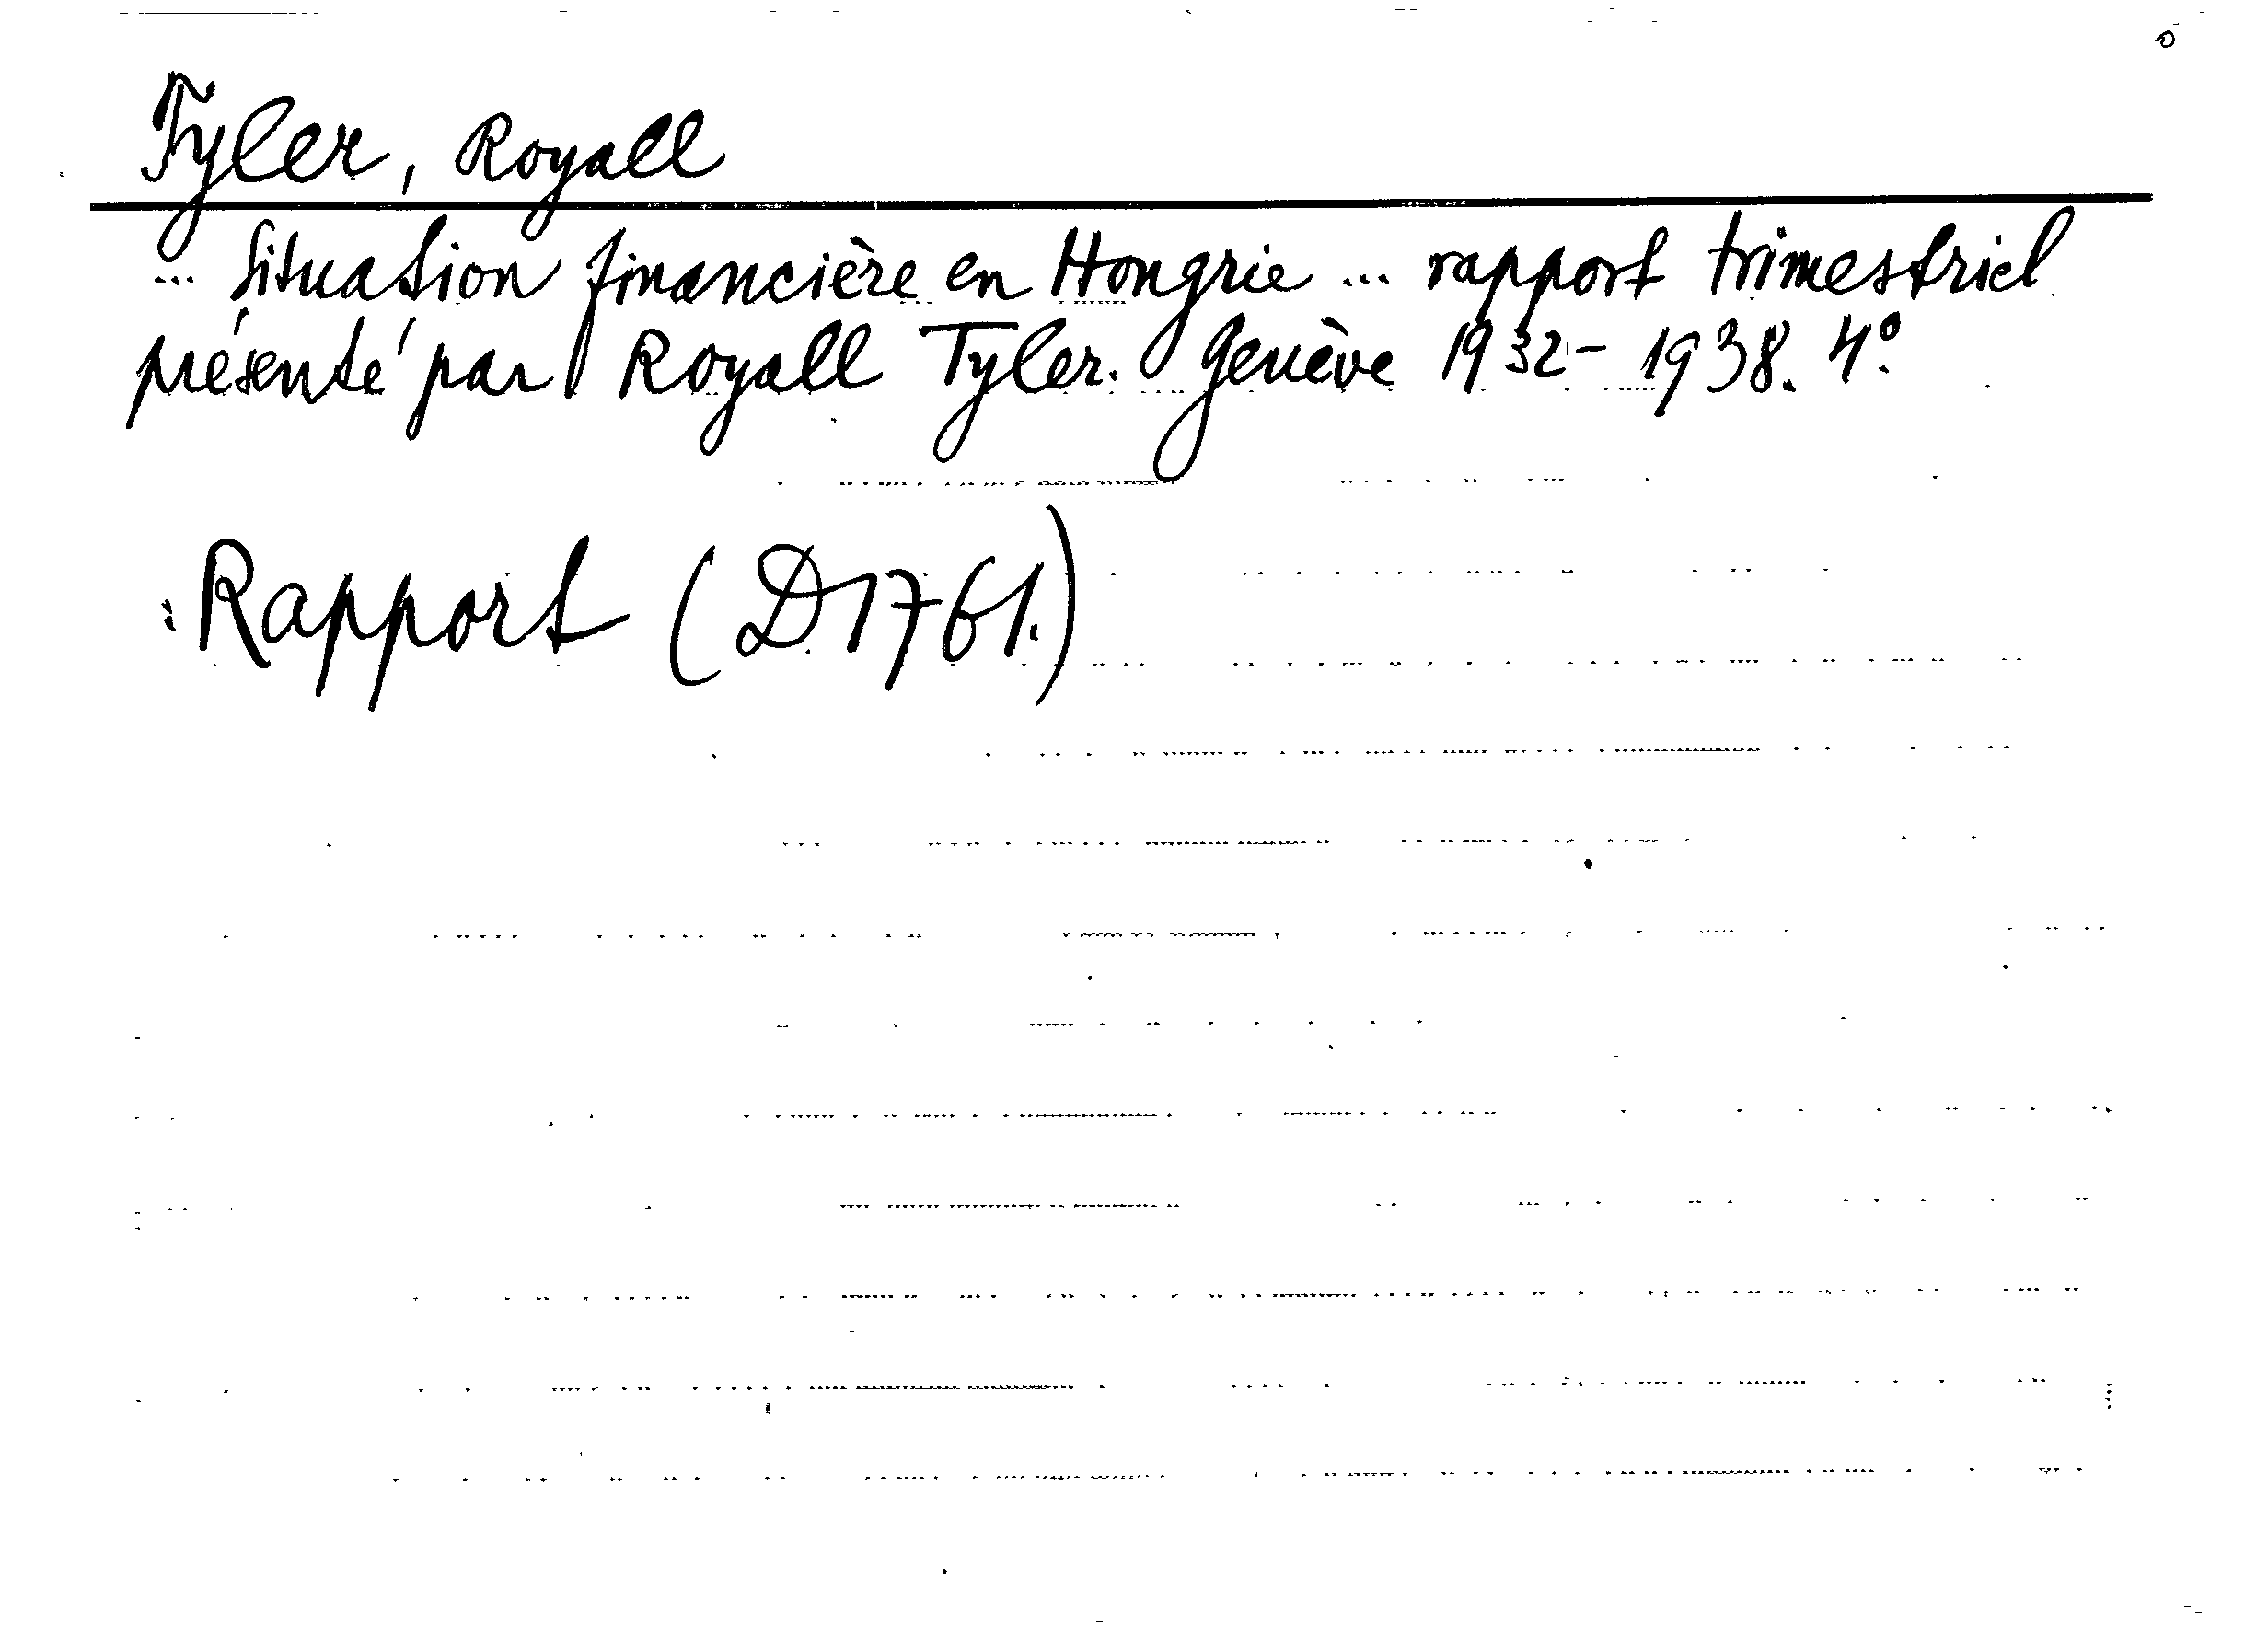 Tyler, Royall
... Situation financière en Hongrie ... rapport trimestriel
présenté par Royall Tyler. Genève 1932-1938. 4°.
Rapport (D1761.)